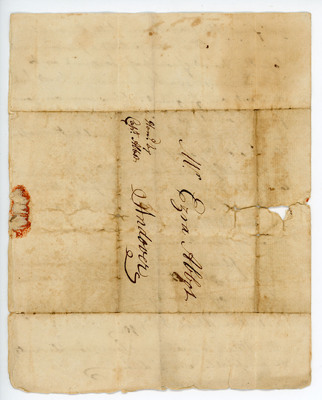 Mr Ezra Abbot
Andover
Hond by
Capt. Abbot